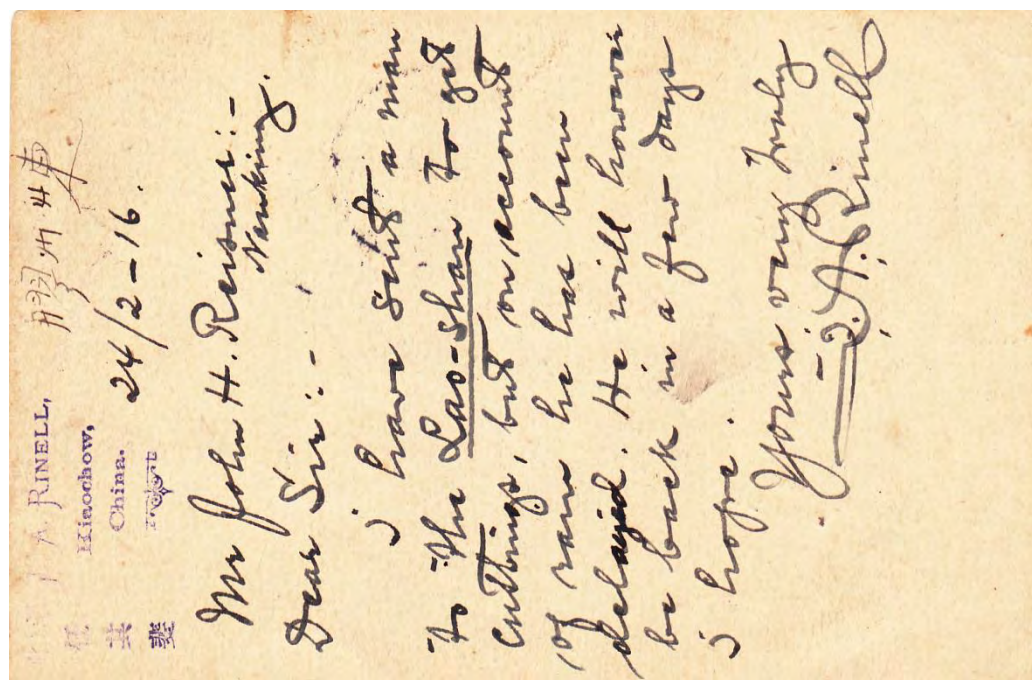 J A RINELL,
Kiaochow,
China.
任
共
聖
膠州
24/2-16.
Mr John H. Reisner:-
Nanking.
Dear Sir:-
i have sent a man
to the Lao-shan to get
cuttings, but on account
of rain he has been
delayed. He will however
be back in a few days
i hope.
Yours very Truly
J. A. Rinell